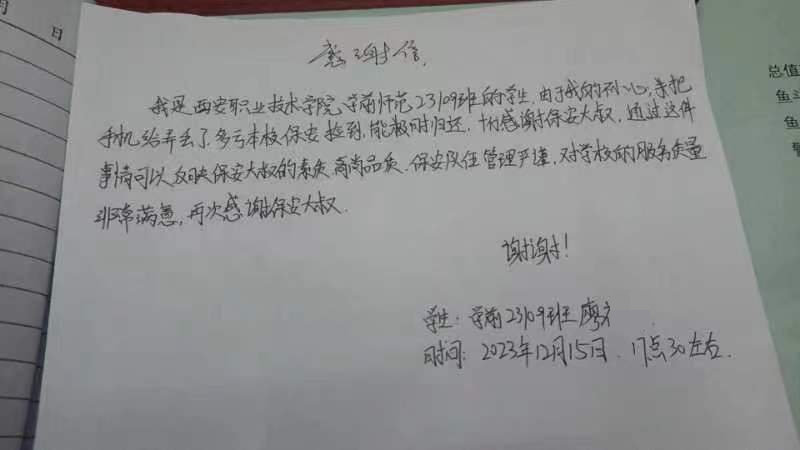 月 日
感谢信
我是西安职业技术学院学前师范23109班的学生,由于我的不小心,
手机给弄丢了,多亏本校保安捡到,能及时归还,十分感谢保安大叔,通过这件
事情可以反映保安大叔的素质高尚品质,保安队伍管理严谨,对学校的服务质量
非常满意,再次感谢保安大叔.
谢谢!
学生:学前23109班 廖
时间:2023年12月15日. 17点30左右.
总值
鱼
鱼